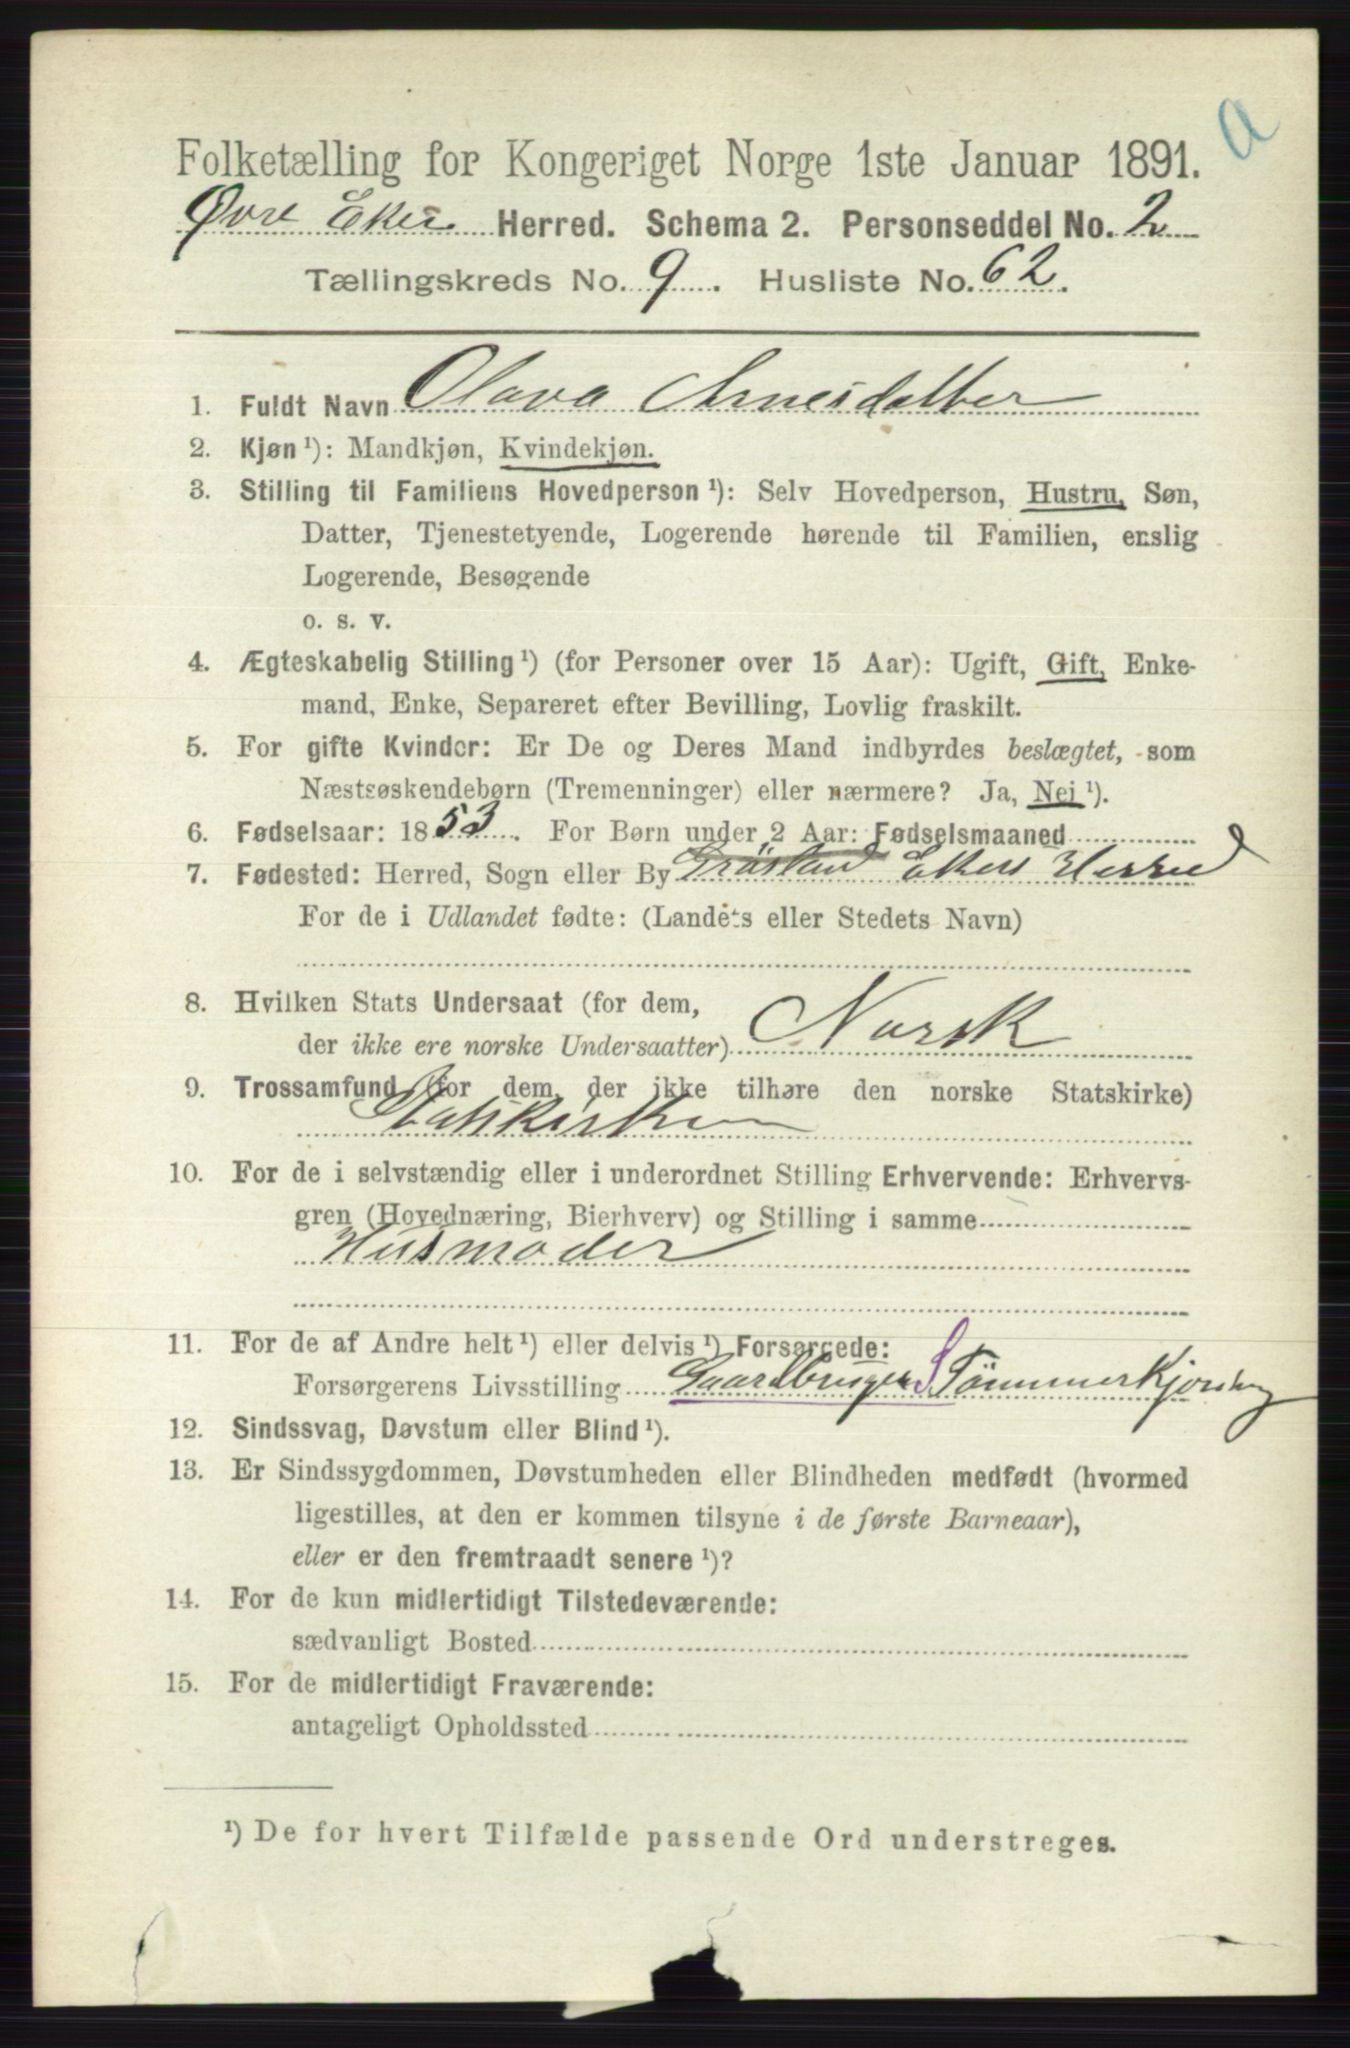 a
Folketælling for Kongeriget Norge 1ste Januar 1891.
Øvre Eker Herred. Schema 2. Personseddel No. 2
Tællingskreds No. 9. Husliste No. 62.
1. Fuldt Navn Olava Arnesdatter
2. Kjøn ¹): Mandkjøn, Kvindekjøn.
3. Stilling til Familiens Hovedperson ¹): Selv Hovedperson, Hustru, Søn,
Datter, Tjenestetyende, Logerende hørende til Familien, enslig
Logerende, Besøgende
o. s. v.
4. Ægteskabelig Stilling ¹) (for Personer over 15 Aar): Ugift, Gift, Enke-
mand, Enke, Separeret efter Bevilling, Lovlig fraskilt.
5. For gifte Kvinder: Er De og Deres Mand indbyrdes beslægtet, som
Næstsøskendebørn (Tremenninger) eller nærmere? Ja, Nei ¹).
6. Fødselsaar: 1853. For Børn under 2 Aar: Fødselsmaaned
7. Fødested: Herred, Sogn eller By Ekers Herred
For de i Udlandet fødte: (Landets eller Stedets Navn)
8. Hvilken Stats Undersaat (for dem,
der ikke ere norske Undersaatter) Norsk
9. Trossamfund (for dem, der ikke tilhøre den norske Statskirke)
Statskirken
10. For de i selvstændig eller i underordnet Stilling Erhvervende: Erhvervs-
gren (Hovednæring, Bierhverv) og Stilling i samme
Husmoder
11. For de af Andre helt ¹) eller delvis ¹) Forsørgede:
Forsørgerens Livsstilling Gaardbruger S Tømmerkjøring
12. Sindssvag, Døvstum eller Blind ¹).
13. Er Sindssygdommen, Døvstumheden eller Blindheden medfødt (hvormed
ligestilles, at den er kommen tilsyne i de første Barneaar),
eller er den fremtraadt senere ¹)?
14. For de kun midlertidigt Tilstedeværende:
sædvanligt Bosted
15. For de midlertidigt Fraværende:
antageligt Opholdssted
¹) De for hvert Tilfælde passende Ord understreges.